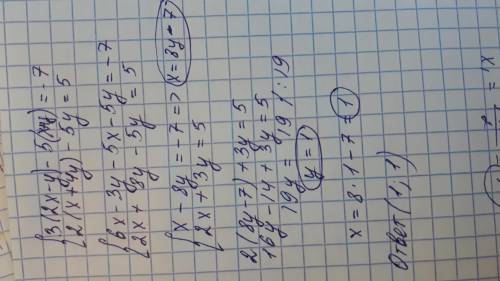 {3(2x-y)-5(x+y)=-7
{2(x+4y)-5y=5
{6x-3y-5x-5y=-7
{2x+8y-5y=5
{x-8y=-7 => x=8y-7
{2x+3y=5
2(8y-7)+3y=5
16y-14+3y=5
19y=19 |:19
y=1
x=8·1-7=1
Ответ (1,1)